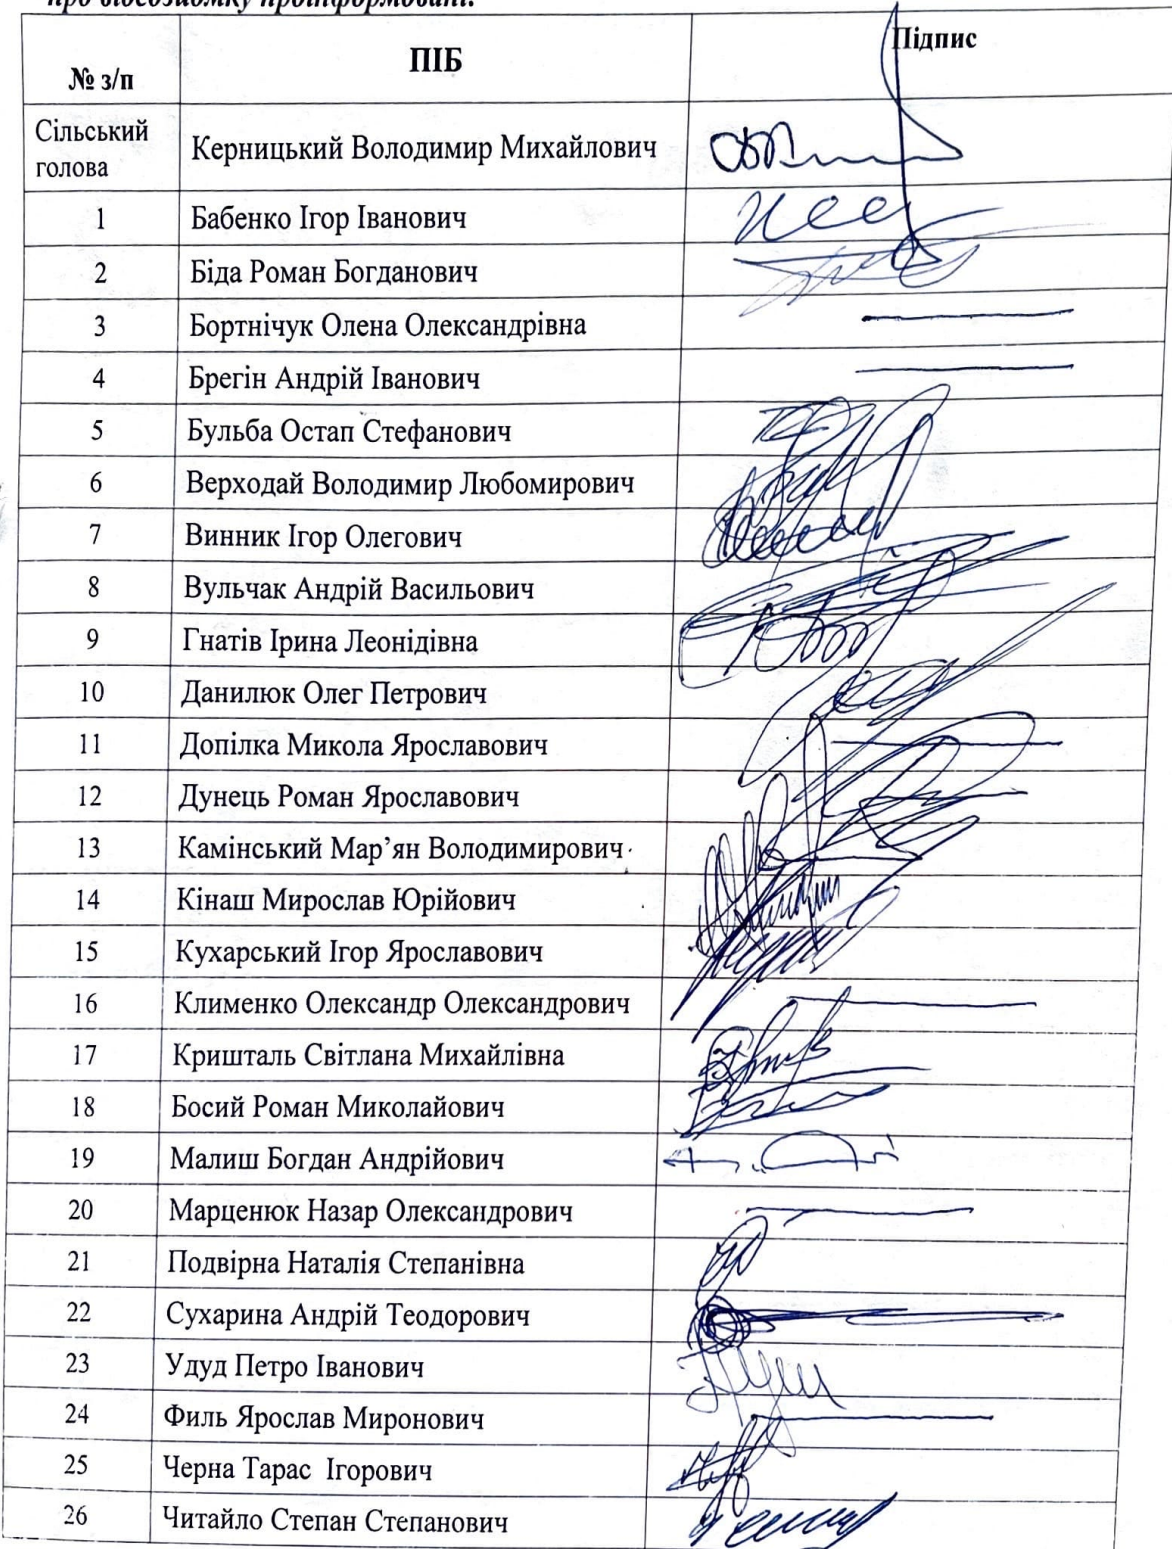 про відеозйомку проінформовані.
№ з/п ПІБ Підпис
Сільський голова Керницький Володимир Михайлович
1 Бабенко Ігор Іванович
2 Біда Роман Богданович
3 Бортнічук Олена Олександрівна
4 Брегін Андрій Іванович
5 Бульба Остап Стефанович
6 Верходай Володимир Любомирович
7 Винник Ігор Олегович
8 Вульчак Андрій Васильович
9 Гнатів Ірина Леонідівна
10 Данилюк Олег Петрович
11 Допілка Микола Ярославович
12 Дунець Роман Ярославович
13 Камінський Мар’ян Володимирович
14 Кінаш Мирослав Юрійович
15 Кухарський Ігор Ярославович
16 Клименко Олександр Олександрович
17 Кришталь Світлана Михайлівна
18 Босий Роман Миколайович
19 Малиш Богдан Андрійович
20 Марценюк Назар Олександрович
21 Подвірна Наталія Степанівна
22 Сухарина Андрій Теодорович
23 Удуд Петро Іванович
24 Филь Ярослав Миронович
25 Черна Тарас Ігорович
26 Читайло Степан Степанович